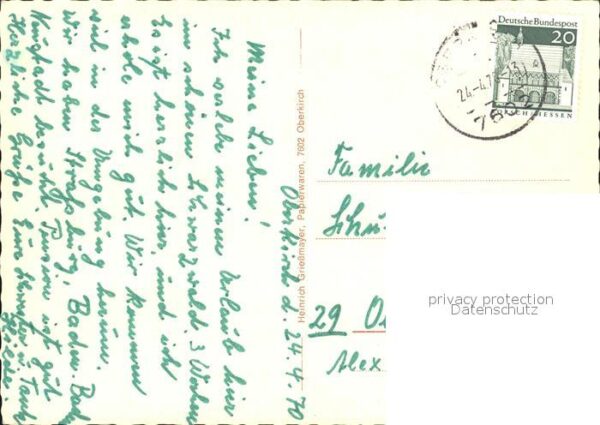 Oberkirch d. 24.4.70
Meine Lieben!
Ich verlebe meinen Urlaub hier
im schönen Schwarzwald. 3 Wochen
Es ist herrlich hier und ich
erhole mich gut. Wir kommen
viel in der Umgebung herum.
Wir haben Straßburg, Baden-Bad.
Neustadt besucht. Pension ist gut
Herzliche Grüße Eure Schwester u. Tante
Heinrich Grießmayer, Papierwaren, 7602 Oberkirch
Deutsche Bundespost
20
LORSCH/HESSEN
24.-4.7
7602
Familie
Schu
29 O
Alex
privacy protection
Datenschutz